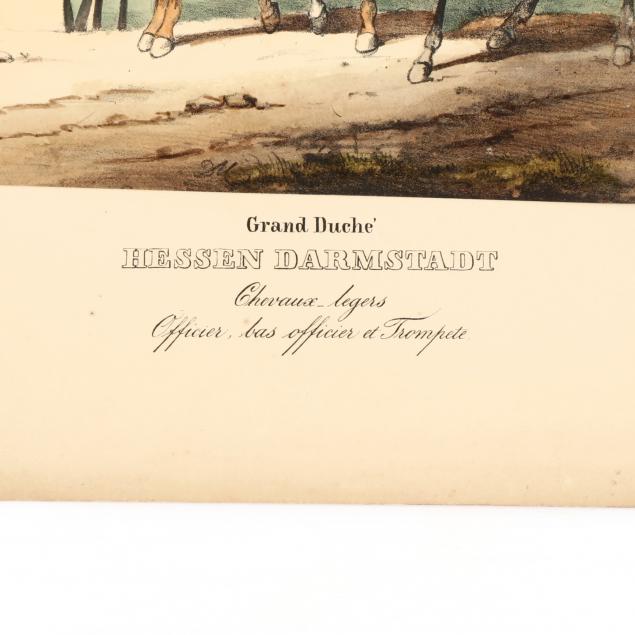 Grand Duche'
HESSEN DARMSTADT
Chevaux-legers
Officier, bas officier et Trompete.